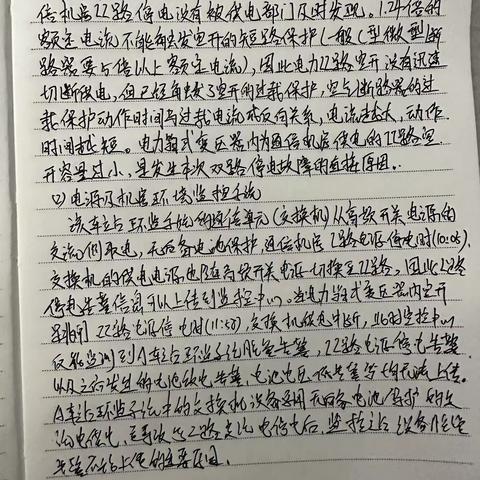 信机房22路停电没有被供电部门及时发现。1.24倍的
额定电流不能触发空开的短路保护(一般C型微型断
路器要5倍以上额定电流),因此电力22路空开没有迅速
切断供电,但已经触发了空开的过载保护,空气断路器的过
载保护动作时间与过载电流成反向关系,电流越大,动作
时间越短。电力箱式变压器内为通信机房供电的22路空
开容量过小,是发生本次双路停电故障的直接原因。
(2)电源及机房环境监控系统
该车站环监系统的通信单元(交换机)从高频开关电源的
交流侧取电,无后备电池保护,通信机房2路电源停电时(10:05),
交换机的供电电源也随高频开关电源切换至22路,因此2路
停电告警信息可以上传到监控中心。当电力箱式变压器内空开
22路电源停电时(11:57),交换机供电中断,此时监控中心
仅能监测到A车站环监子系统脱管告警,22路电源停电告警
以及之后发生的电池放电告警,电池电压低告警等均无法上传。
A车站环监子系统中的交换机设备采用无后备电池保护的交
流电供电,是导致22路交流电停电后,监控主站设备
告警不能上传的主要原因。